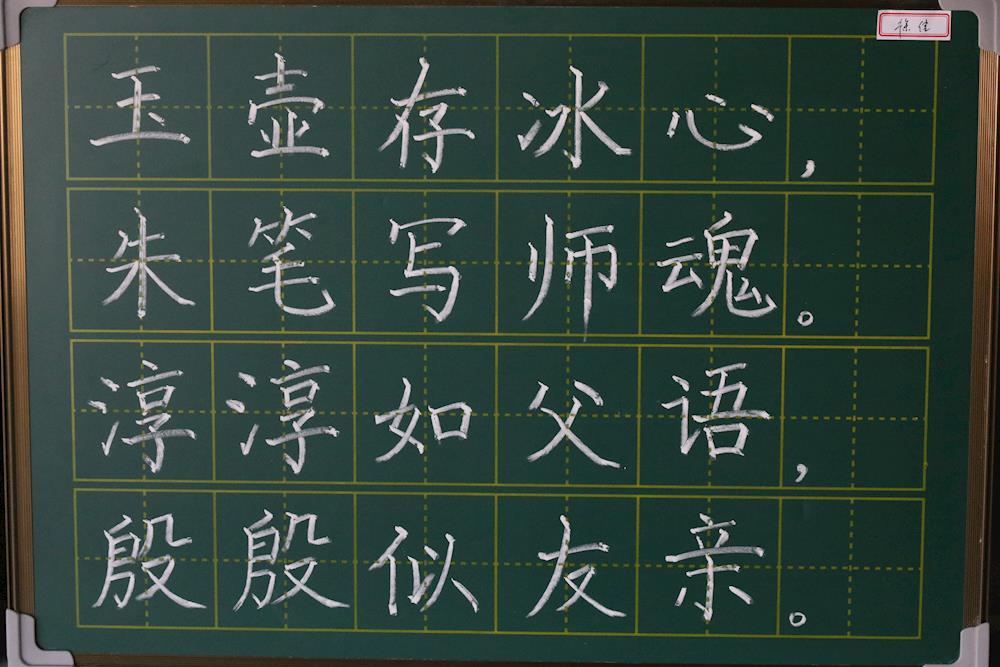 徐佳
玉壶存冰心，
朱笔写师魂。
淳淳如父语，
殷殷似友亲。